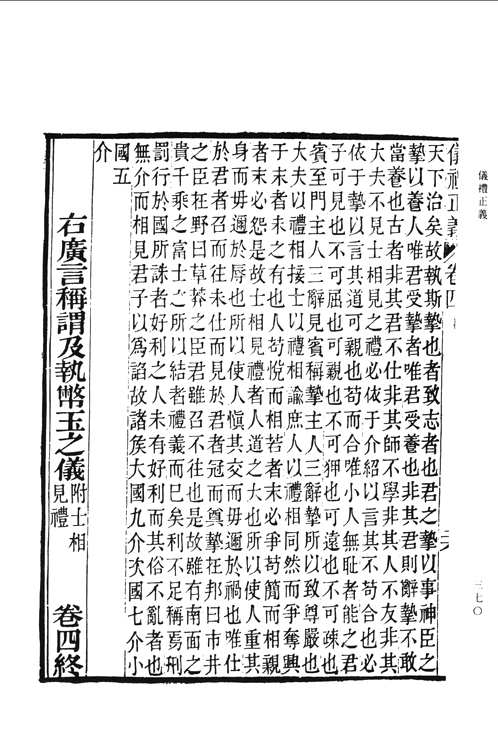 儀禮正義
三七〇
儀禮正義 卷四
天下治矣故執斯摯也者致志者也君之摯以事神臣之
摯以養人唯君受摯者唯君受養也非其君則辭摯不敢
當養也古者非其君不仕非其師不學非其人不友非其
大夫不見士相見之禮必依于介紹以言其不苟合也必
依于摯以言其道可親也苟而合唯小人無恥者能之君
子可見也不可屈也可親也不可狎也可遠也不可疎也
賓至門主人三辭見賓稱摯主人三辭摯所以致尊嚴也
大夫以禮相接士以禮相諭庶人以禮相同然而爭奪興
于末者未之有也人苟悅而相若者末必爭苟簡而相親
者末必怨是故士相見禮者人道之大也所以使人重其
身而毋邇於辱也所以使人愼其交而毋邇於禍也唯仕
於君者召而往未仕而見於君者冠而奠摯在邦曰市井
之臣在野曰草莽之臣君雖召不往也是故雖有南面之
貴千乘之富士之所以結者禮義而已矣利不足稱焉刑
罰行於國所誅者好利之人未有好利而其俗不亂者也
無介而相見君子以爲諂故諸侯大國九介次國七介小
國五
介
右廣言稱謂及執幣玉之儀 附士相見禮 卷四終